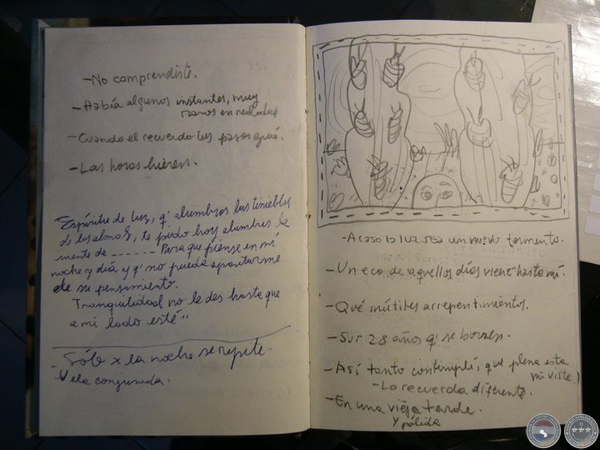 -No comprendiste.
-Había algunos instantes, muy
raros en realidad
-Cuando el recuerdo tus pasos guié.
-Las horas hieren.
"Espíritu de luz, q' alumbras las tinieblas
de las almas, te pido hoy alumbres la
mente de _ _ _ _ _ _ Para que piense en mi
noche y día y q' no pueda apartarme
de su pensamiento.
Tranquilidad no le des hasta que
a mi lado esté"
-Sólo x la noche se repite.
-Vela conjurada.
-Acaso la luz sea un nuevo tormento.
-Un eco de aquellos días viene hasta mí.
-Qué inútiles arrepentimientos.
-Sur 28 años q' se borran.
-Así tanto contemplé, que plena esta
mi vista)
-La recuerda diferente.
-En una vieja tarde
y pálida